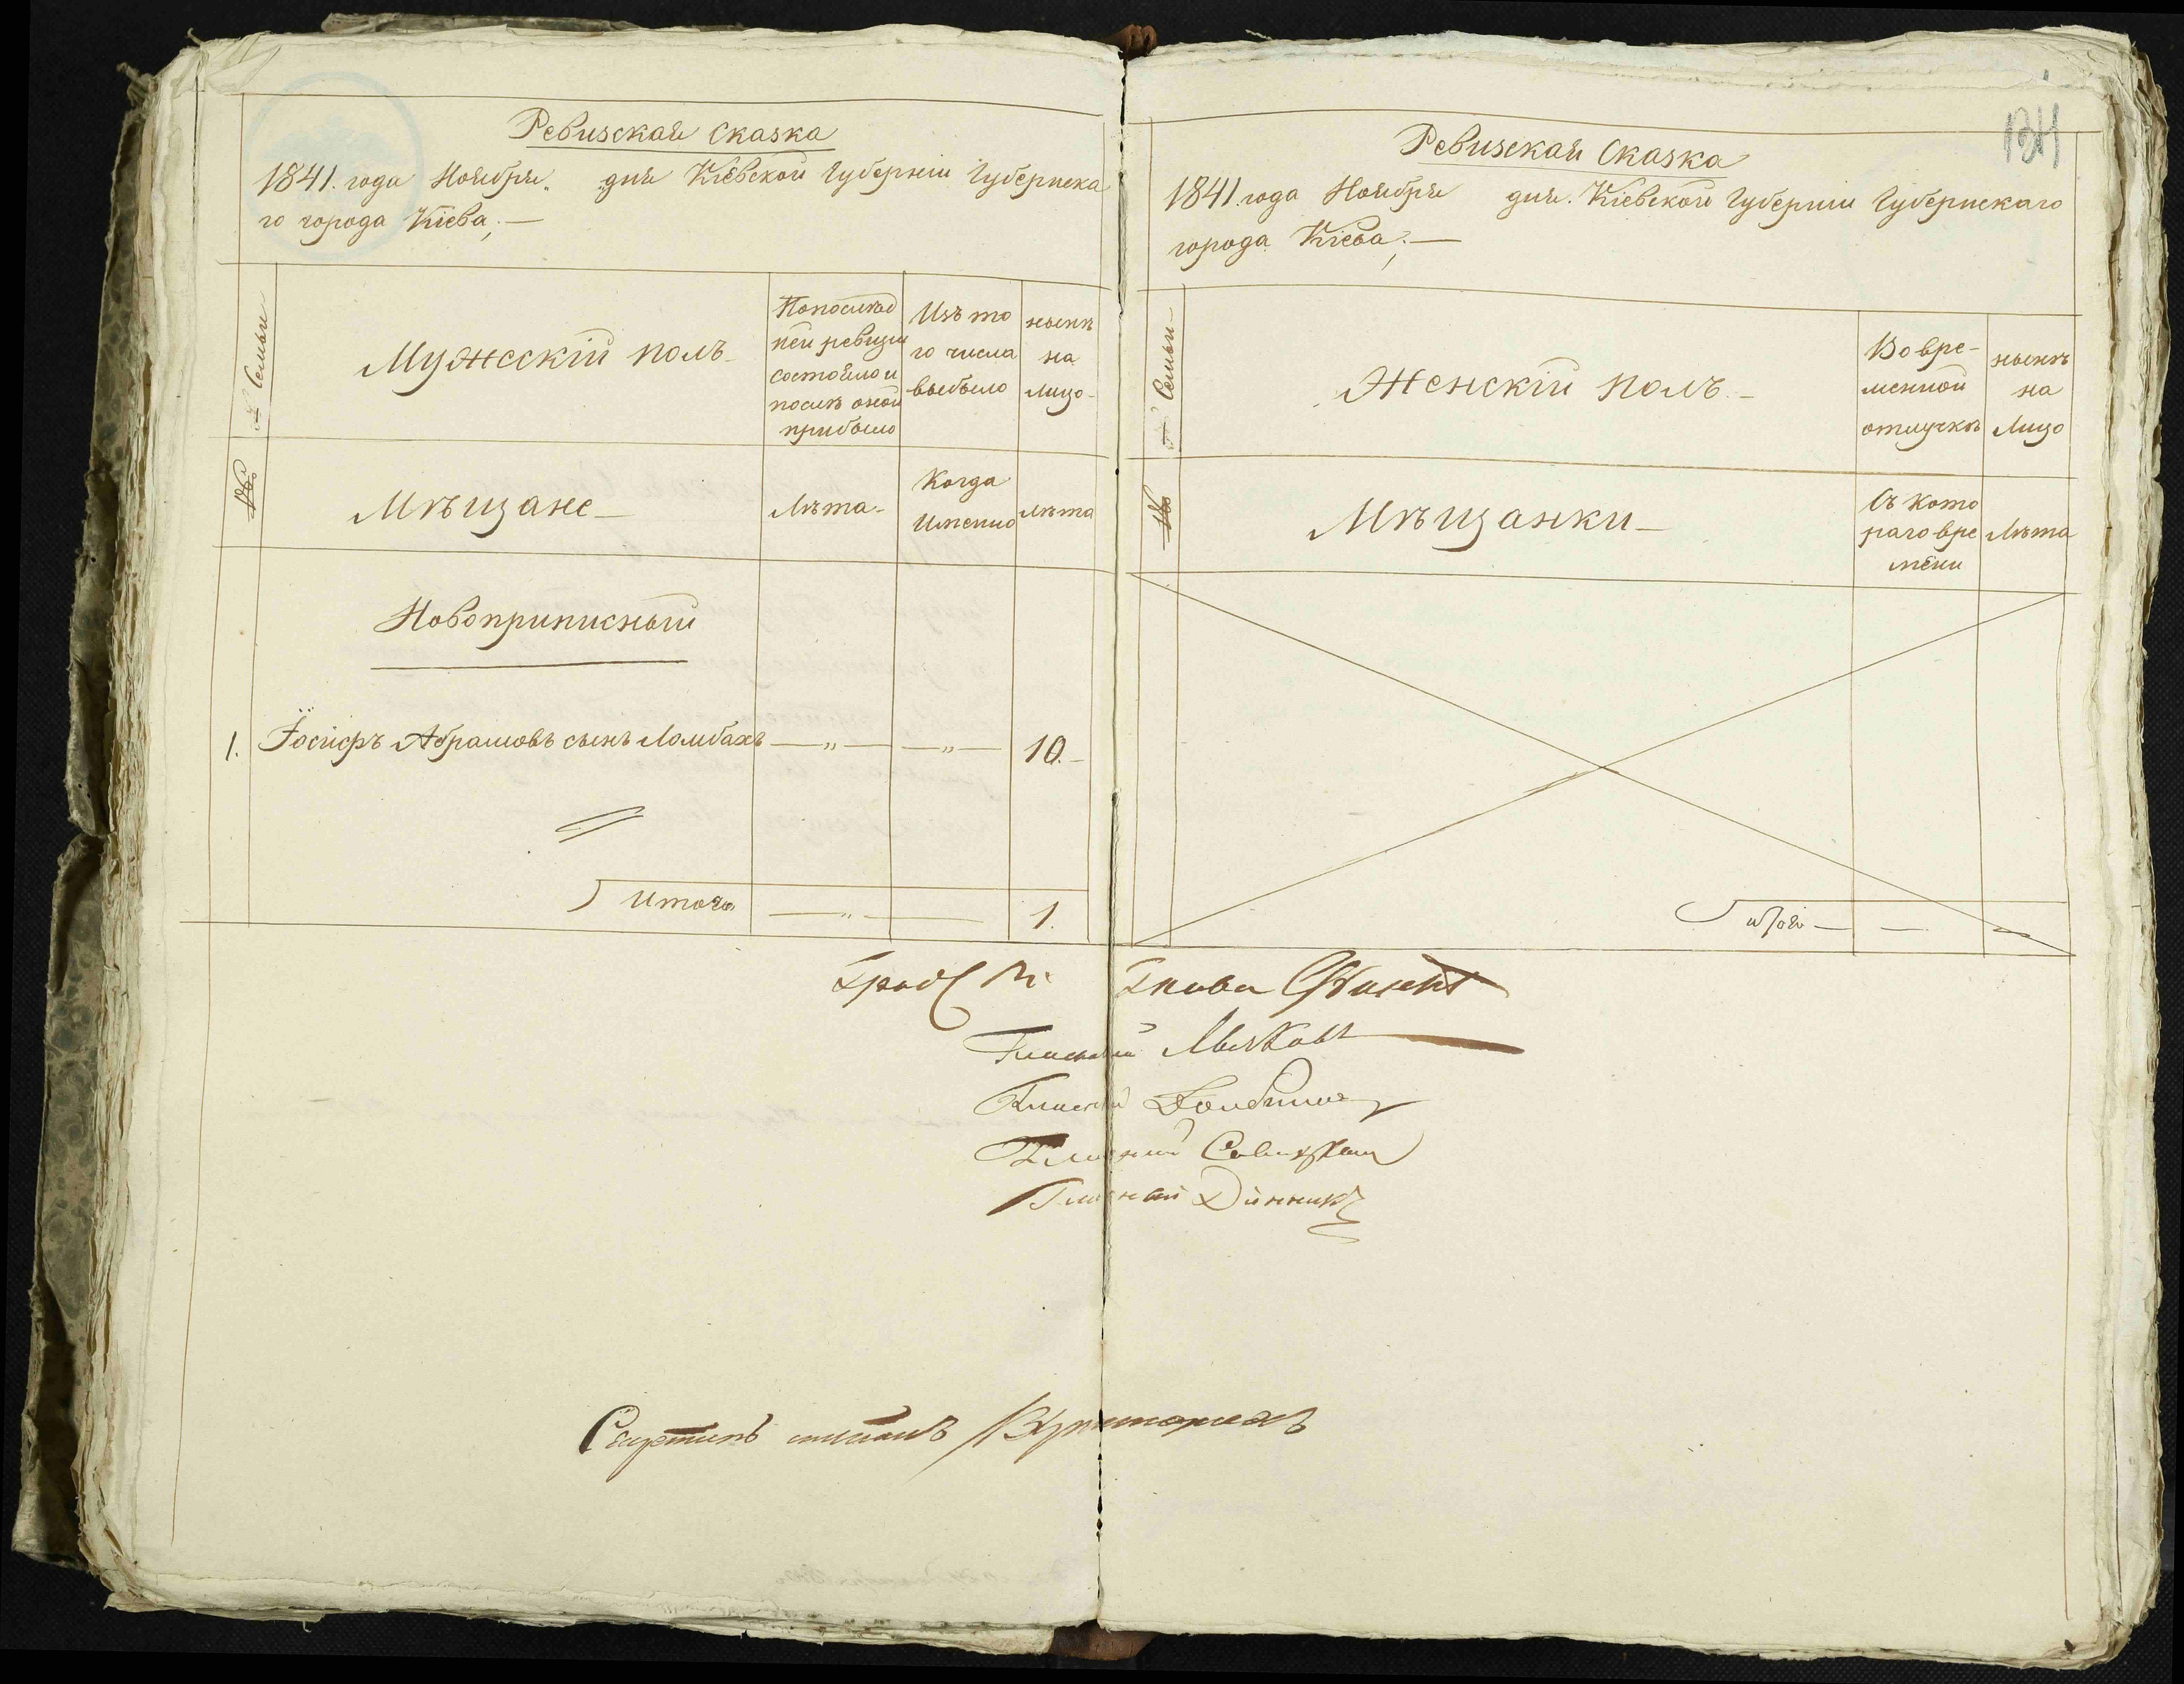 Ревизская сказка
1841. года Ноября. дня Кіевской Губерніи Губернска
го города Кіева;—
№ Семьи
Мужескій полъ
По послѣд
ней ревизіи
состояло и
послѣ оной
прибыло
Изъ то
го числа
выбыло
нынѣ
на
лицо
Мѣщане
Лѣта
Когда
Именно
Лѣта
Новоприписный
1. Іосифъ Абрамовъ сынъ Ломбахъ —„— —„— 10.
Итого —„— 1.
134
Ревизская Сказка
1841 года Ноября дня. Кіевской Губерніи Губернскаго
города Кіева;—
№ Семьи
Женскій полъ
Во вре-
менной
отлучкѣ
нынѣ
на
Лицо
Мѣщанки
Съ кото
раго вре
мени
Лѣта
Итого — — —
Гласный
Гласный
Гласный
Гласный Динникъ